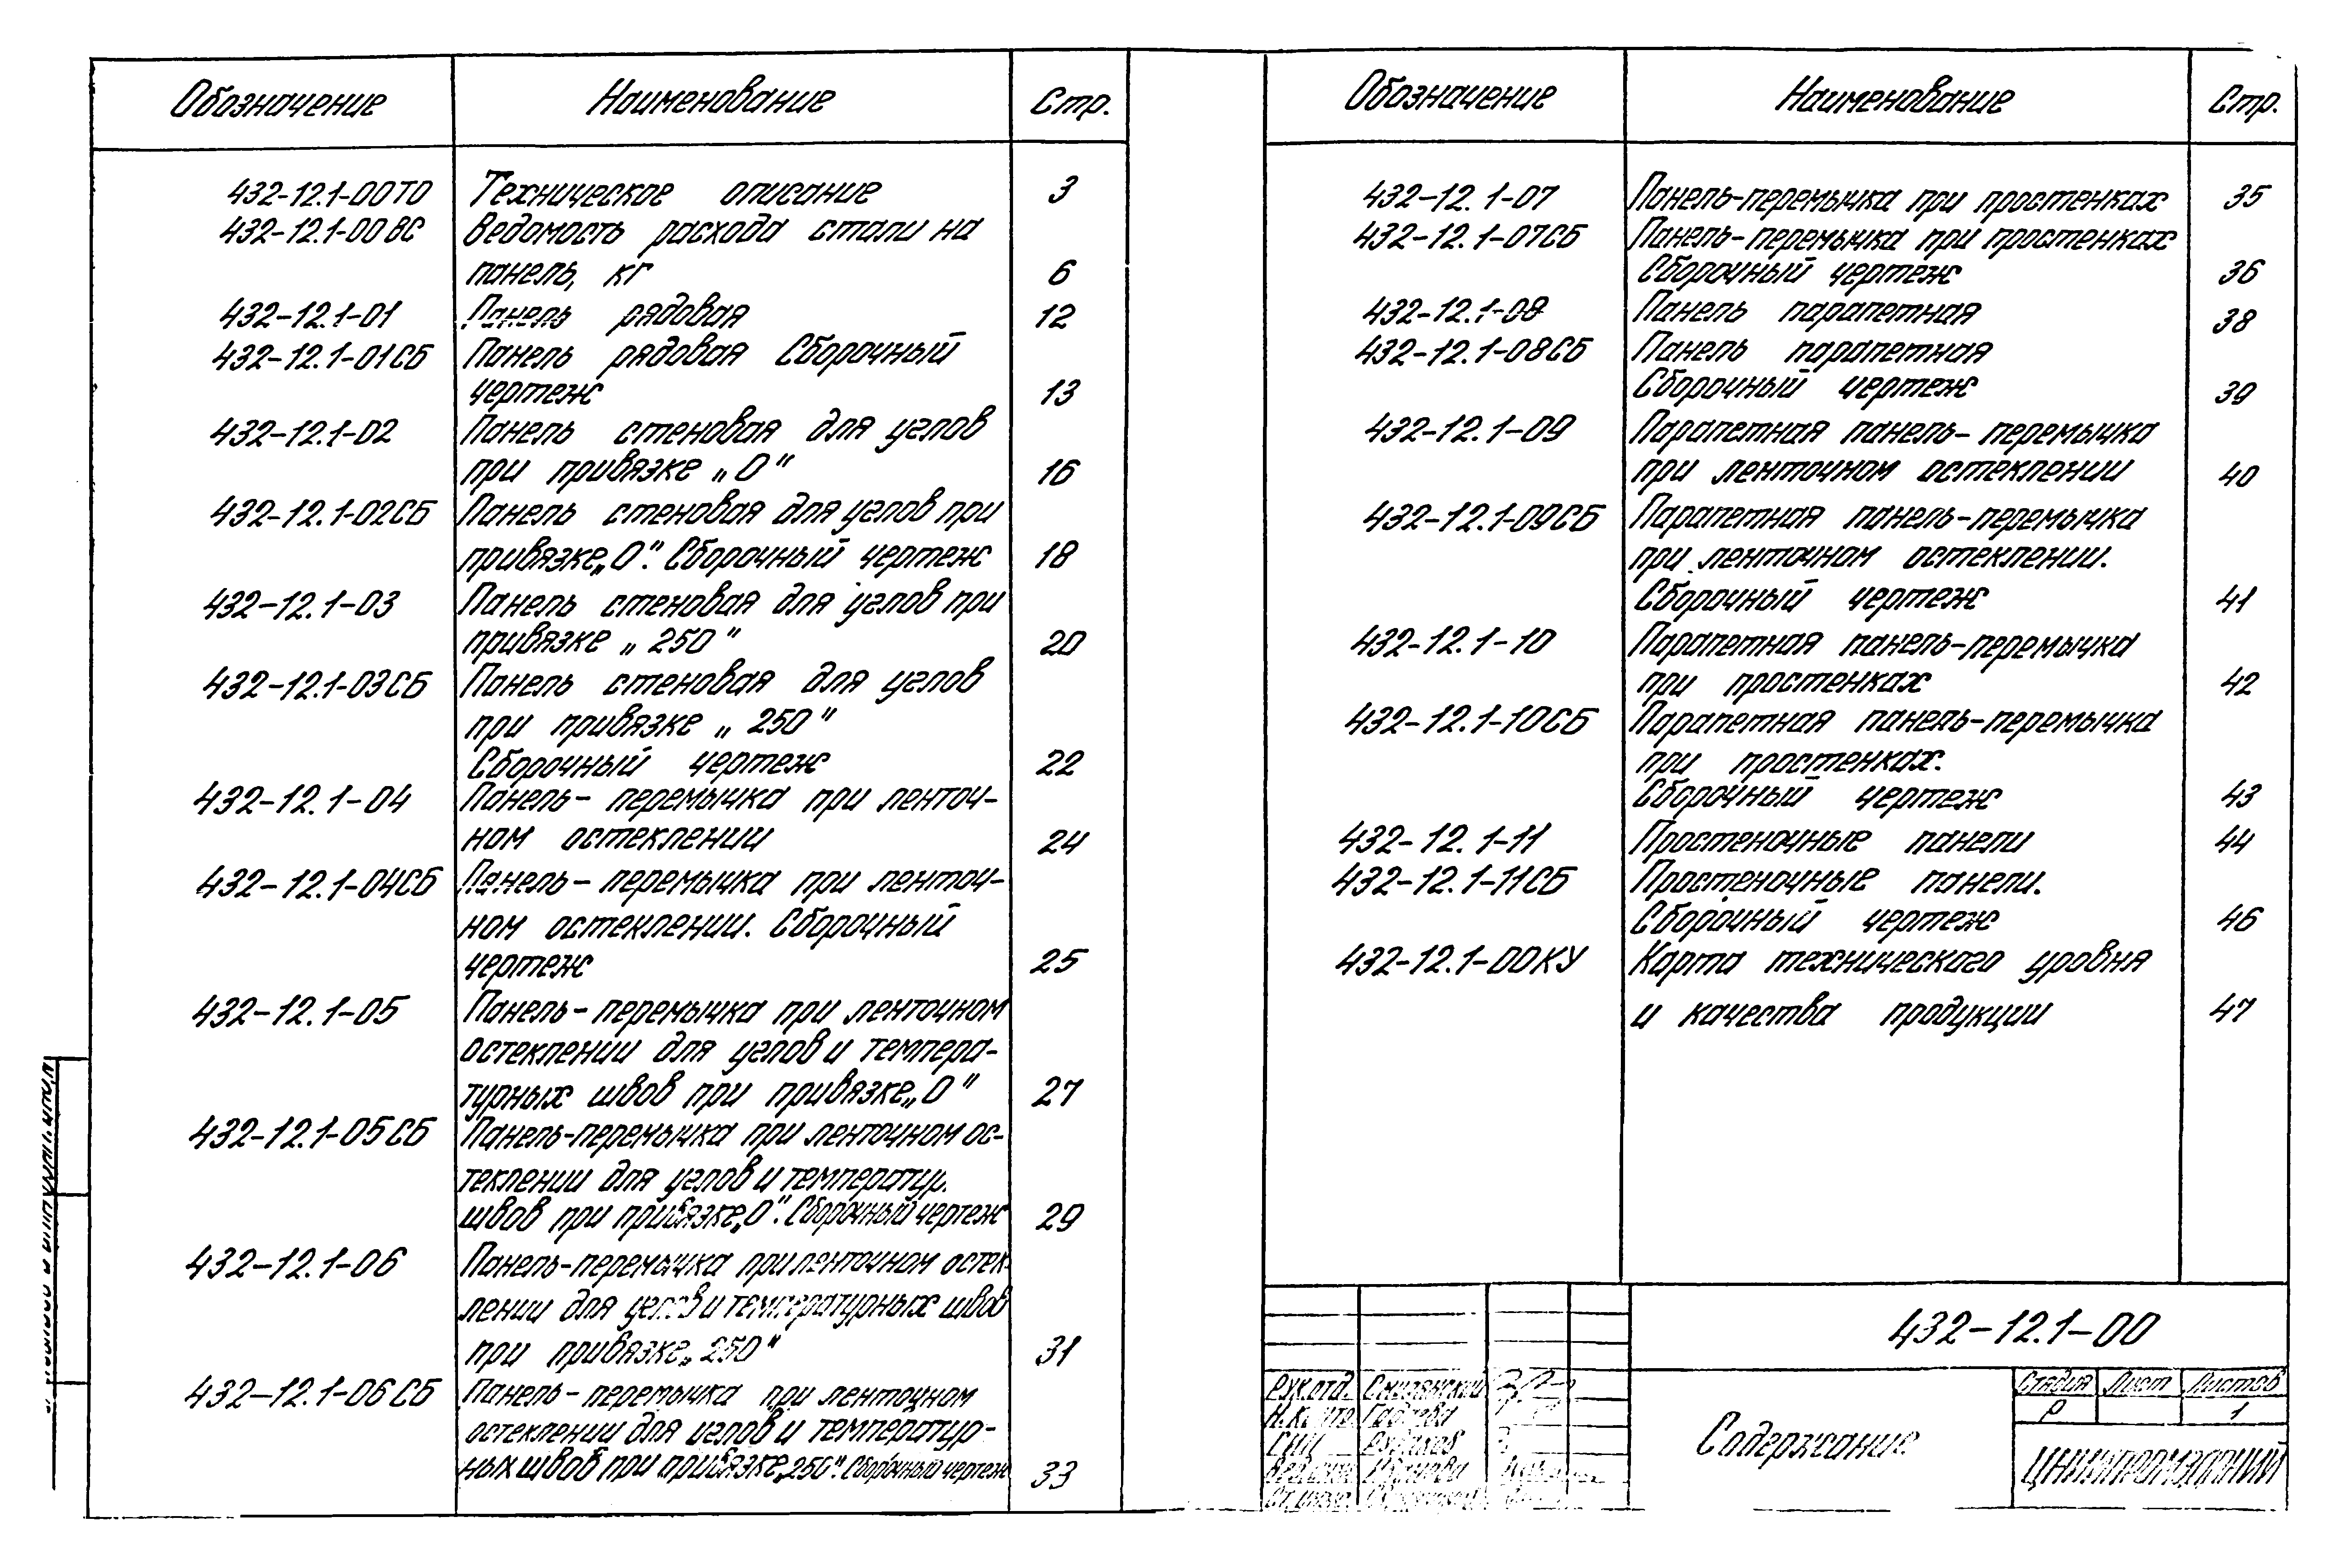 Обозначение Наименование Стр.
432-12.1-00ТО Техническое описание 3
432-12.1-00ВС Ведомость расхода стали на
панель, кг 6
432-12.1-01 Панель рядовая 12
432-12.1-01СБ Панель рядовая Сборочный
чертеж 13
432-12.1-02 Панель стеновая для углов
при привязке „0" 16
432-12.1-02СБ Панель стеновая для углов при
привязке „0". Сборочный чертеж 18
432-12.1-03 Панель стеновая для углов при
привязке „250" 20
432-12.1-03СБ Панель стеновая для углов
при привязке „250"
Сборочный чертеж 22
432-12.1-04 Панель-перемычка при ленточ-
ном остеклении 24
432-12.1-04СБ Панель-перемычка при ленточ-
ном остеклении. Сборочный
чертеж 25
432-12.1-05 Панель-перемычка при ленточном
остеклении для углов и темпера-
турных швов при привязке „0" 27
432-12.1-05СБ Панель-перемычка при ленточном ос-
теклении для углов и температур.
швов при привязке „0". Сборочный чертеж 29
432-12.1-06 Панель-перемычка при ленточном остек-
лении для углов и температурных швов
при привязке „250" 31
432-12.1-06СБ Панель-перемычка при ленточном
остеклении для углов и температур-
ных швов при привязке „250". Сборочный чертеж 33
Обозначение Наименование Стр.
432-12.1-07 Панель-перемычка при простенках 35
432-12.1-07СБ Панель-перемычка при простенках
Сборочный чертеж 36
432-12.1-08 Панель парапетная 38
432-12.1-08СБ Панель парапетная
Сборочный чертеж 39
432-12.1-09 Парапетная панель-перемычка
при ленточном остеклении 40
432-12.1-09СБ Парапетная панель-перемычка
при ленточном остеклении.
Сборочный чертеж 41
432-12.1-10 Парапетная панель-перемычка
при простенках 42
432-12.1-10СБ Парапетная панель-перемычка
при простенках.
Сборочный чертеж 43
432-12.1-11 Простеночные панели 44
432-12.1-11СБ Простеночные панели.
Сборочный чертеж 46
432-12.1-00КУ Карта технического уровня
и качества продукции 47
432-12.1-00
Рук.отд. Смилянский
ГИП
Содержание
Стадия Лист Листов
Р 1
ЦНИИПРОМЗДАНИЙ